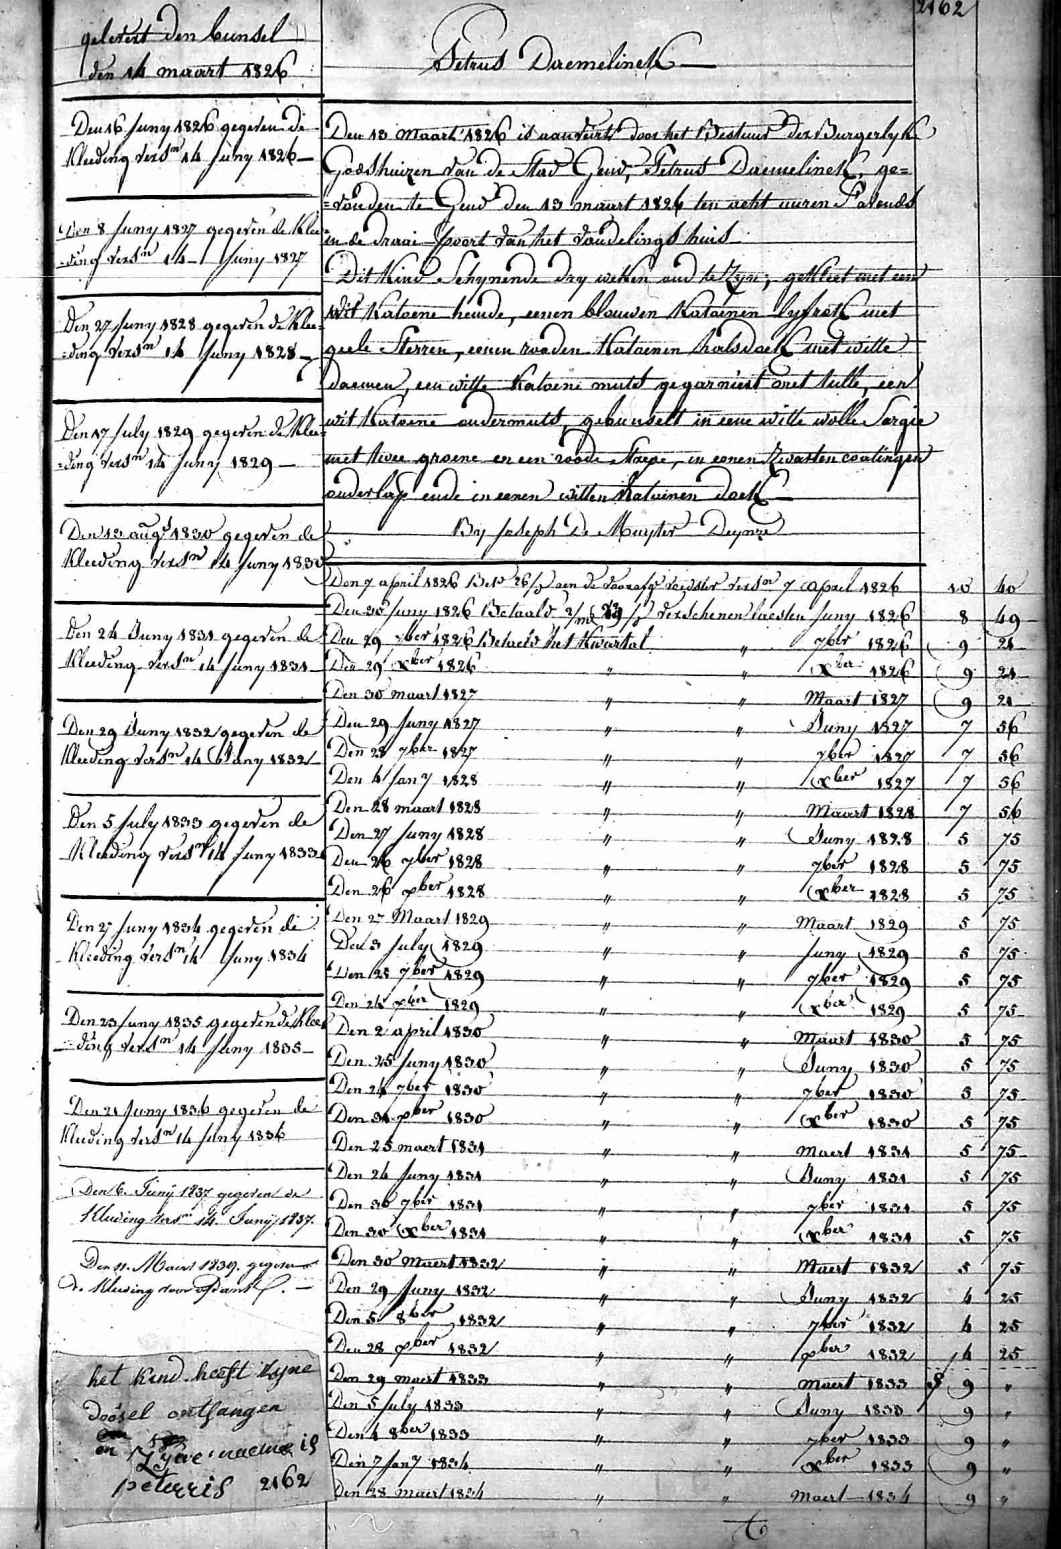 2162
gelevert den bunsel
den 14 maart 1826
Petrus Daemelinck
Den 16 Juny 1826 gegeven de
Kleeding versn 14 Juny 1826
Den 8 Juny 1827 gegeven de Klee
=ding versn 14 Juny 1827
Den 27 Juny 1828 gegeven de Klee=
=ding versn 14 Juny 1828
Den 17 July 1829 gegeven de Klee=
=ding versn 14 Juny 1829
Den 13 augt 1830 gegeven de
Kleeding versn 14 Juny 1830
Den 24 Juny 1831 gegeven de
Kleeding versn 14 Juny 1831
Den 29 Juny 1832 gegeven de
Kleeding versn 14 Juny 1832
Den 5 July 1833 gegeven de
Kleeding versn 14 Juny 1833
Den 27 Juny 1834 gegeven de
Kleeding versn 14 Juny 1834
Den 23 Juny 1835 gegeven de Klee
=ding versn 14 Juny 1835
Den 21 Juny 1836 gegeven de
Kleeding versn 14 Juny 1836
Den 6. Junÿ 1837 gegeven de
Kleeding versn 14. Junÿ 1837.
Den 11. Maert 1839. gegeven
de Kleeding voor
het kind heeft zyne
doosel ontfangen
en Zyne naeme is
peterris 2162
Den 13 Maart 1826 is aanveird door het Bestuur der Burgerlyke
Godshuizen van de Stad Gend, Petrus Daemelinck, ge=
=vonden te Gend den 13 maart 1826 ten acht uuren s'avends
in de draai-poort van het vondelings huis
Dit Kind Schynende dry weken oud te Zyn; gekleet met een
wit Katoene hemde, eenen blauwen Katoenen lyfrok met
geele Sterren, eenen rooden Katoenen halsdoek met witte
daemen, een witte Katoene muts gegarniert met tulle, een
wit Katoene ondermuts, gebunselt in eene witte wolle Sargie
met twee groene en een roode Straepe, in eenen Zwarten coatingen
onderlap ende in eenen witten Katoenen doek
By Joseph De Muyter Deynze
Den 7 april 1826 aen de voorzorg versn 7 april 1826 10 40
Den 30 Juny 1826 Betaald verschenen laesten Juny 1826 8 49
Den 29 7ber 1826 Betaeld het Kwartal " 7ber 1826 9 21
Den 29 Xber 1826 " " Xber 1826 9 21
Den 30 maart 1827 " " Maart 1827 9 21
Den 29 Juny 1827 " " Juny 1827 7 56
Den 28 7ber 1827 " " 7ber 1827 7 56
Den 4 Jany 1828 " " Xber 1827 7 56
Den 28 maart 1828 " " Maart 1828 7 56
Den 27 Juny 1828 " " Juny 1828 5 75
Den 26 7ber 1828 " " 7ber 1828 5 75
Den 26 Xber 1828 " " Xber 1828 5 75
Den 27 Maart 1829 " " Maart 1829 5 75
Den 3 July 1829 " " Juny 1829 5 75
Den 25 7ber 1829 " " 7ber 1829 5 75
Den 24 Xber 1829 " " Xber 1829 5 75
Den 2 april 1830 " " Maart 1830 5 75
Den 25 Juny 1830 " " Juny 1830 5 75
Den 24 7ber 1830 " " 7ber 1830 5 75
Den 31 Xber 1830 " " Xber 1830 5 75
Den 25 maert 1831 " " Maert 1831 5 75
Den 24 Juny 1831 " " Juny 1831 5 75
Den 30 7ber 1831 " " 7ber 1831 5 75
Den 30 Xber 1831 " " Xber 1831 5 75
Den 30 Maert 1832 " " Maert 1832 5 75
Den 29 Juny 1832 " " Juny 1832 4 25
Den 5 8ber 1832 " " 7ber 1832 4 25
Den 28 Xber 1832 " " Xber 1832 4 25
Den 29 maert 1833 " " Maert 1833 f 9 "
Den 5 July 1833 " " Juny 1833 9 "
Den 4 8ber 1833 " " 7ber 1833 9 "
Den 7 Jany 1834 " " Xber 1833 9 "
Den 28 maert 1834 " " Maert 1834 9 "